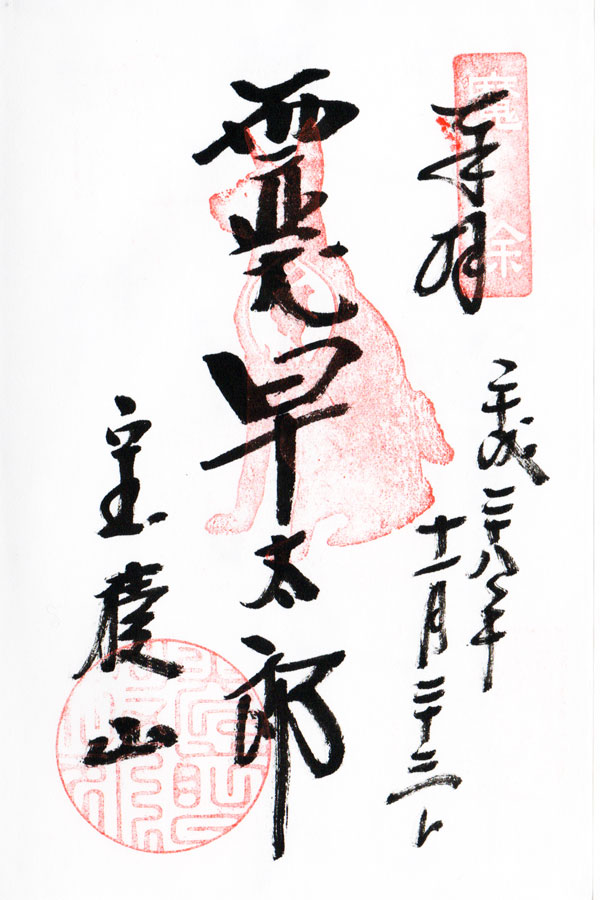 魔除
奉拝
平成二十八年
十一月二十三日
霊犬早太郎
宝積山